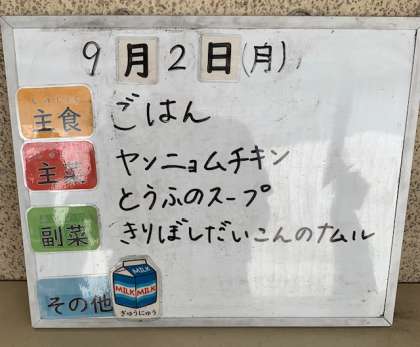 9月2日(月)
主食 ごはん
主菜 ヤンニョムチキン
とうふのスープ
副菜 きりぼしだいこんのナムル
その他 MILK MILK MILK
ぎゅうにゅう